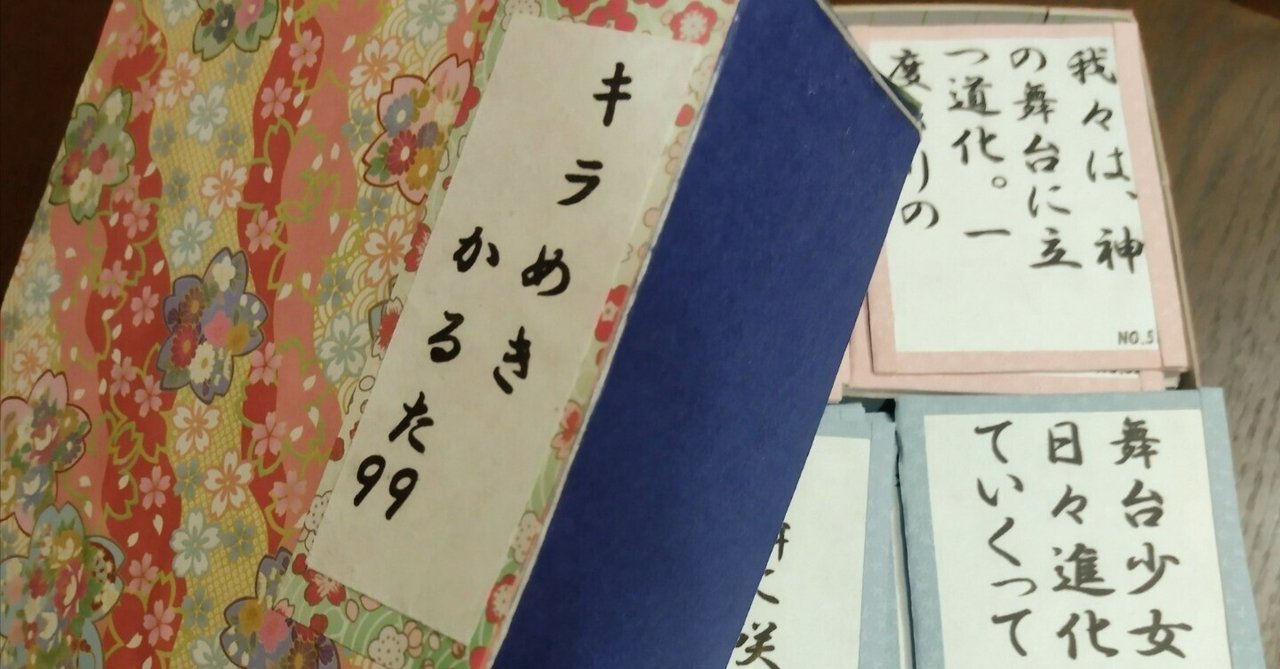 キラめき
かるた
99
我々は、神
の舞台に立
つ道化。一
度りの
NO.5
舞台少女
日々進化
ていくって
咲